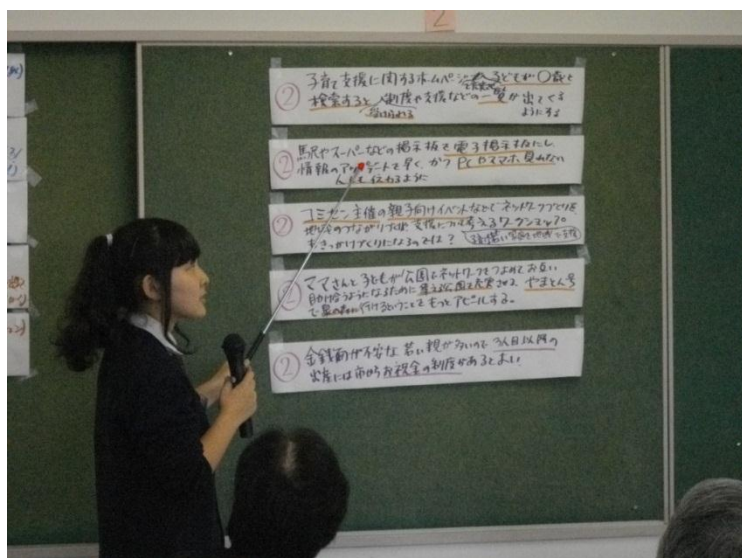 2
② 子育て支援に関するホームページ 子どもが〇歳と
検索すると 制度や支援などの一覧が出てくる
受けられる ようにする
② 馬沢やスーパーなどの掲示板を電子掲示板にし、
情報のアップデートを早く、かつPCやスマホ見れない
人にも伝わるように
② コミセン主催の親子向けイベントなどで ネットワークづくりを
地域のつながり 支援について考えるワークショップ。
きっかけづくりになるのでは?
② ママさんと子どもが公園でネットワークをつよめてお互い
助け合うようになるために 公園を充実させる やまとん号
で 行けるということをもっとアピールする。
② 金銭面が不安な若い親が多いので 3人目以降の
出産には市からお祝金の制度があるとよい